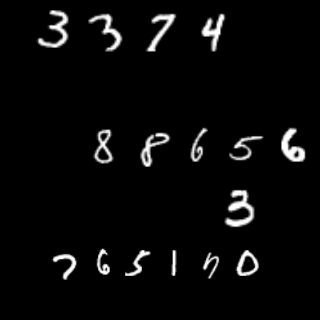 3374
88656
3
765170